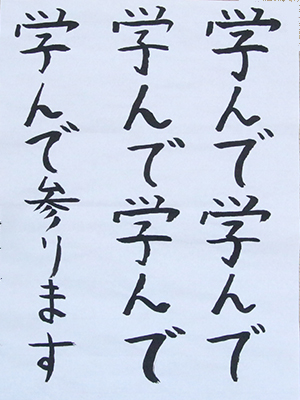 学んで学んで
学んで学んで
学んで参ります